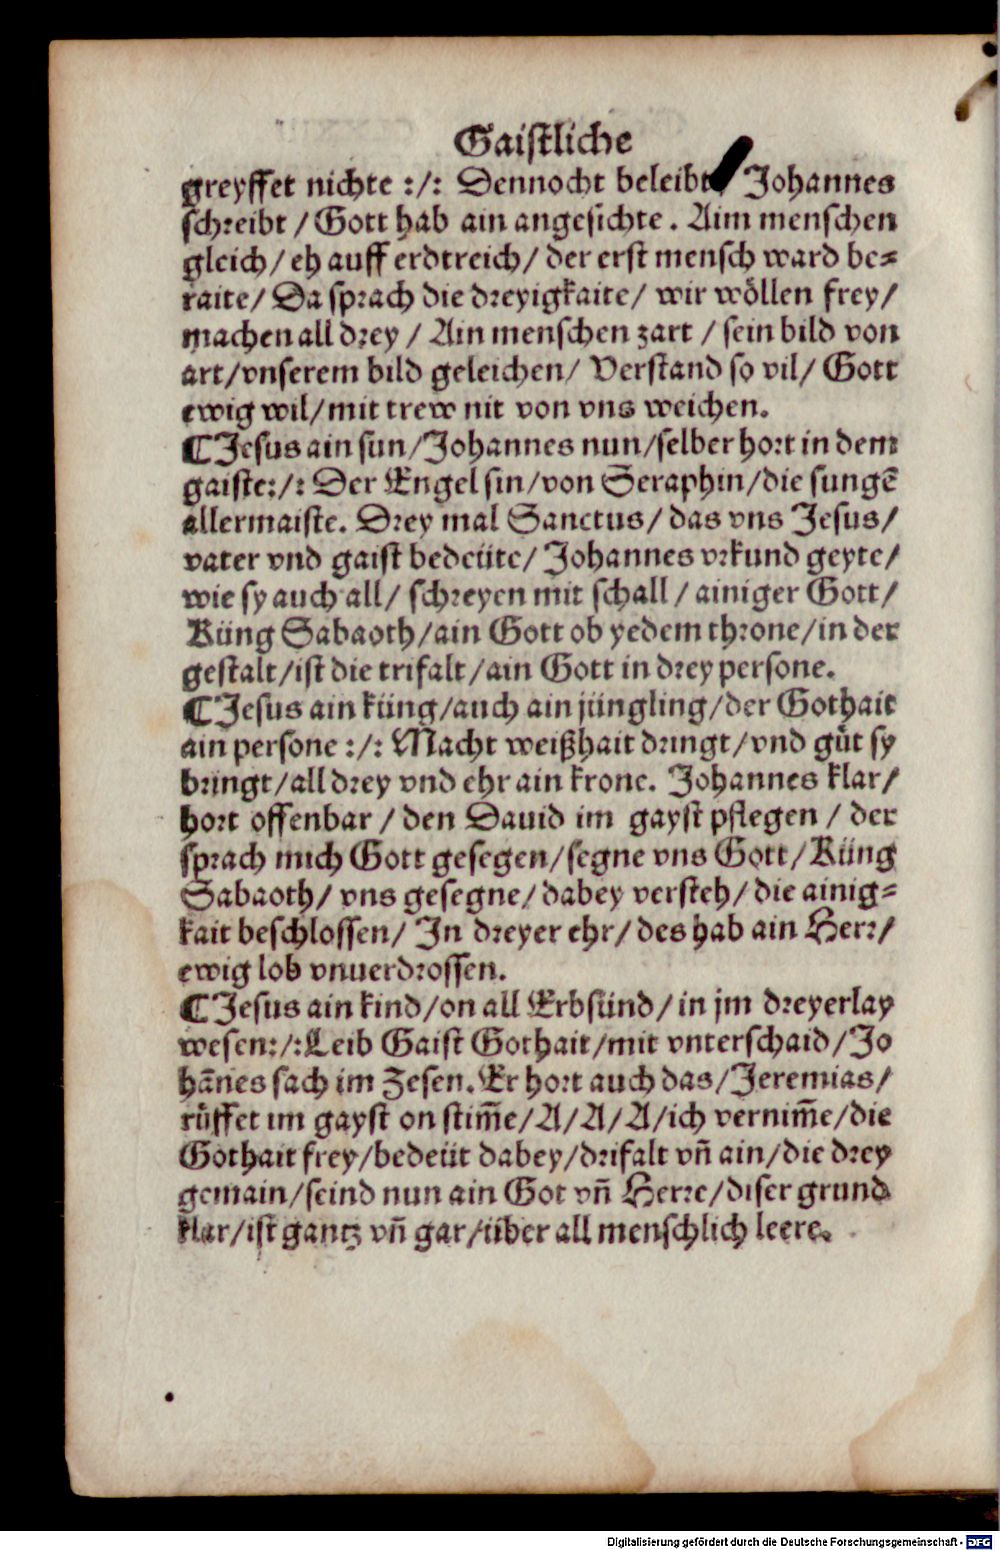 Gaistliche
greyffet nichte :/: Dennocht beleibt/ Johannes
schreibt / Gott hab ain angesichte . Aim menschen
gleich/ eh auff erdtreich/ der erst mensch ward be⸗
raite/ Da sprach die dreyigkaite/ wir wöllen frey/
machen all drey / Ain menschen zart / sein bild von
art/vnserem bild geleichen/ Verstand so vil/ Gott
ewig wil/mit trew nit von vns weichen.
¶Jesus ain sun/Johannes nun/selber hort in dem
gaiste:/: Der Engel sin/von Seraphin/die sungē
allermaiste. Drey mal Sanctus/ das vns Jesus/
vater vnd gaist bedeüte/ Johannes vrkund geyte/
wie sy auch all/ schreyen mit schall / ainiger Gott/
Küng Sabaoth/ain Gott ob yedem throne/in der
gestalt/ist die trifalt/ain Gott in drey persone.
¶Jesus ain küng/auch ain jüngling/der Gothait
ain persone :/: Macht weißhait dringt/vnd gůt sy
bringt/all drey vnd ehr ain krone. Johannes klar/
hort offenbar / den Dauid im gayst pflegen / der
sprach mich Gott gesegen/segne vns Gott/Küng
Sabaoth/ vns gesegne/dabey versteh/die ainig⸗
kait beschlossen/ In dreyer ehr/des hab ain Herr/
ewig lob vnuerdrossen.
¶Jesus ain kind/on all Erbsünd/in jm dreyerlay
wesen:/:Leib Gaist Gothait/mit vnterschaid/Jo
hānes sach im Zesen. Er hort auch das/Jeremias/
růffet im gayst on stim̄e/A/A/A/ich vernim̄e/die
Gothait frey/bedeüt dabey/drifalt vn̄ ain/die drey
gemain/seind nun ain Got vn̄ Herre/diser grund
klar/ist gantz vn̄ gar/über all menschlich leere.
Digitalisierung gefördert durch die Deutsche Forschungsgemeinschaft - DFG